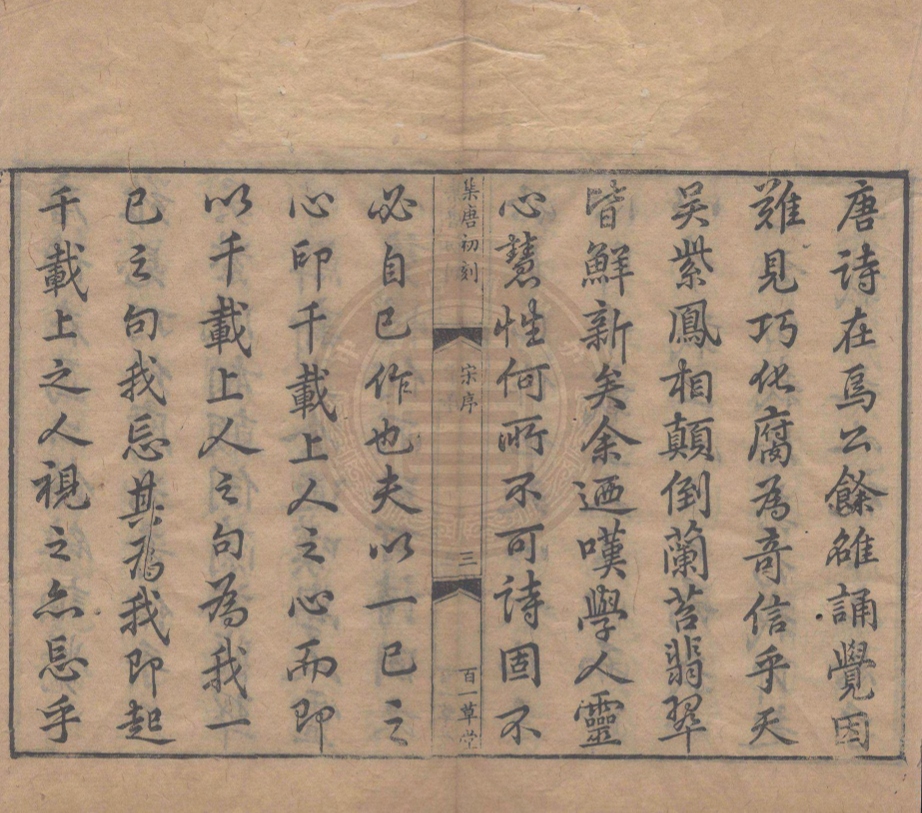 唐詩在焉公餘雒誦覺因
難見巧化腐為奇信乎天
吴紫鳳相顛倒蘭苕翡翠
皆鮮新矣余迺嘆學人靈
心慧性何所不可詩固不
集唐初刻 宋序 三 百一草堂
必自已作也夫以一已之
心印千載上人之心而即
以千載上人之句為我一
已之句我忘其為我即起
千載上之人視之亦忘乎